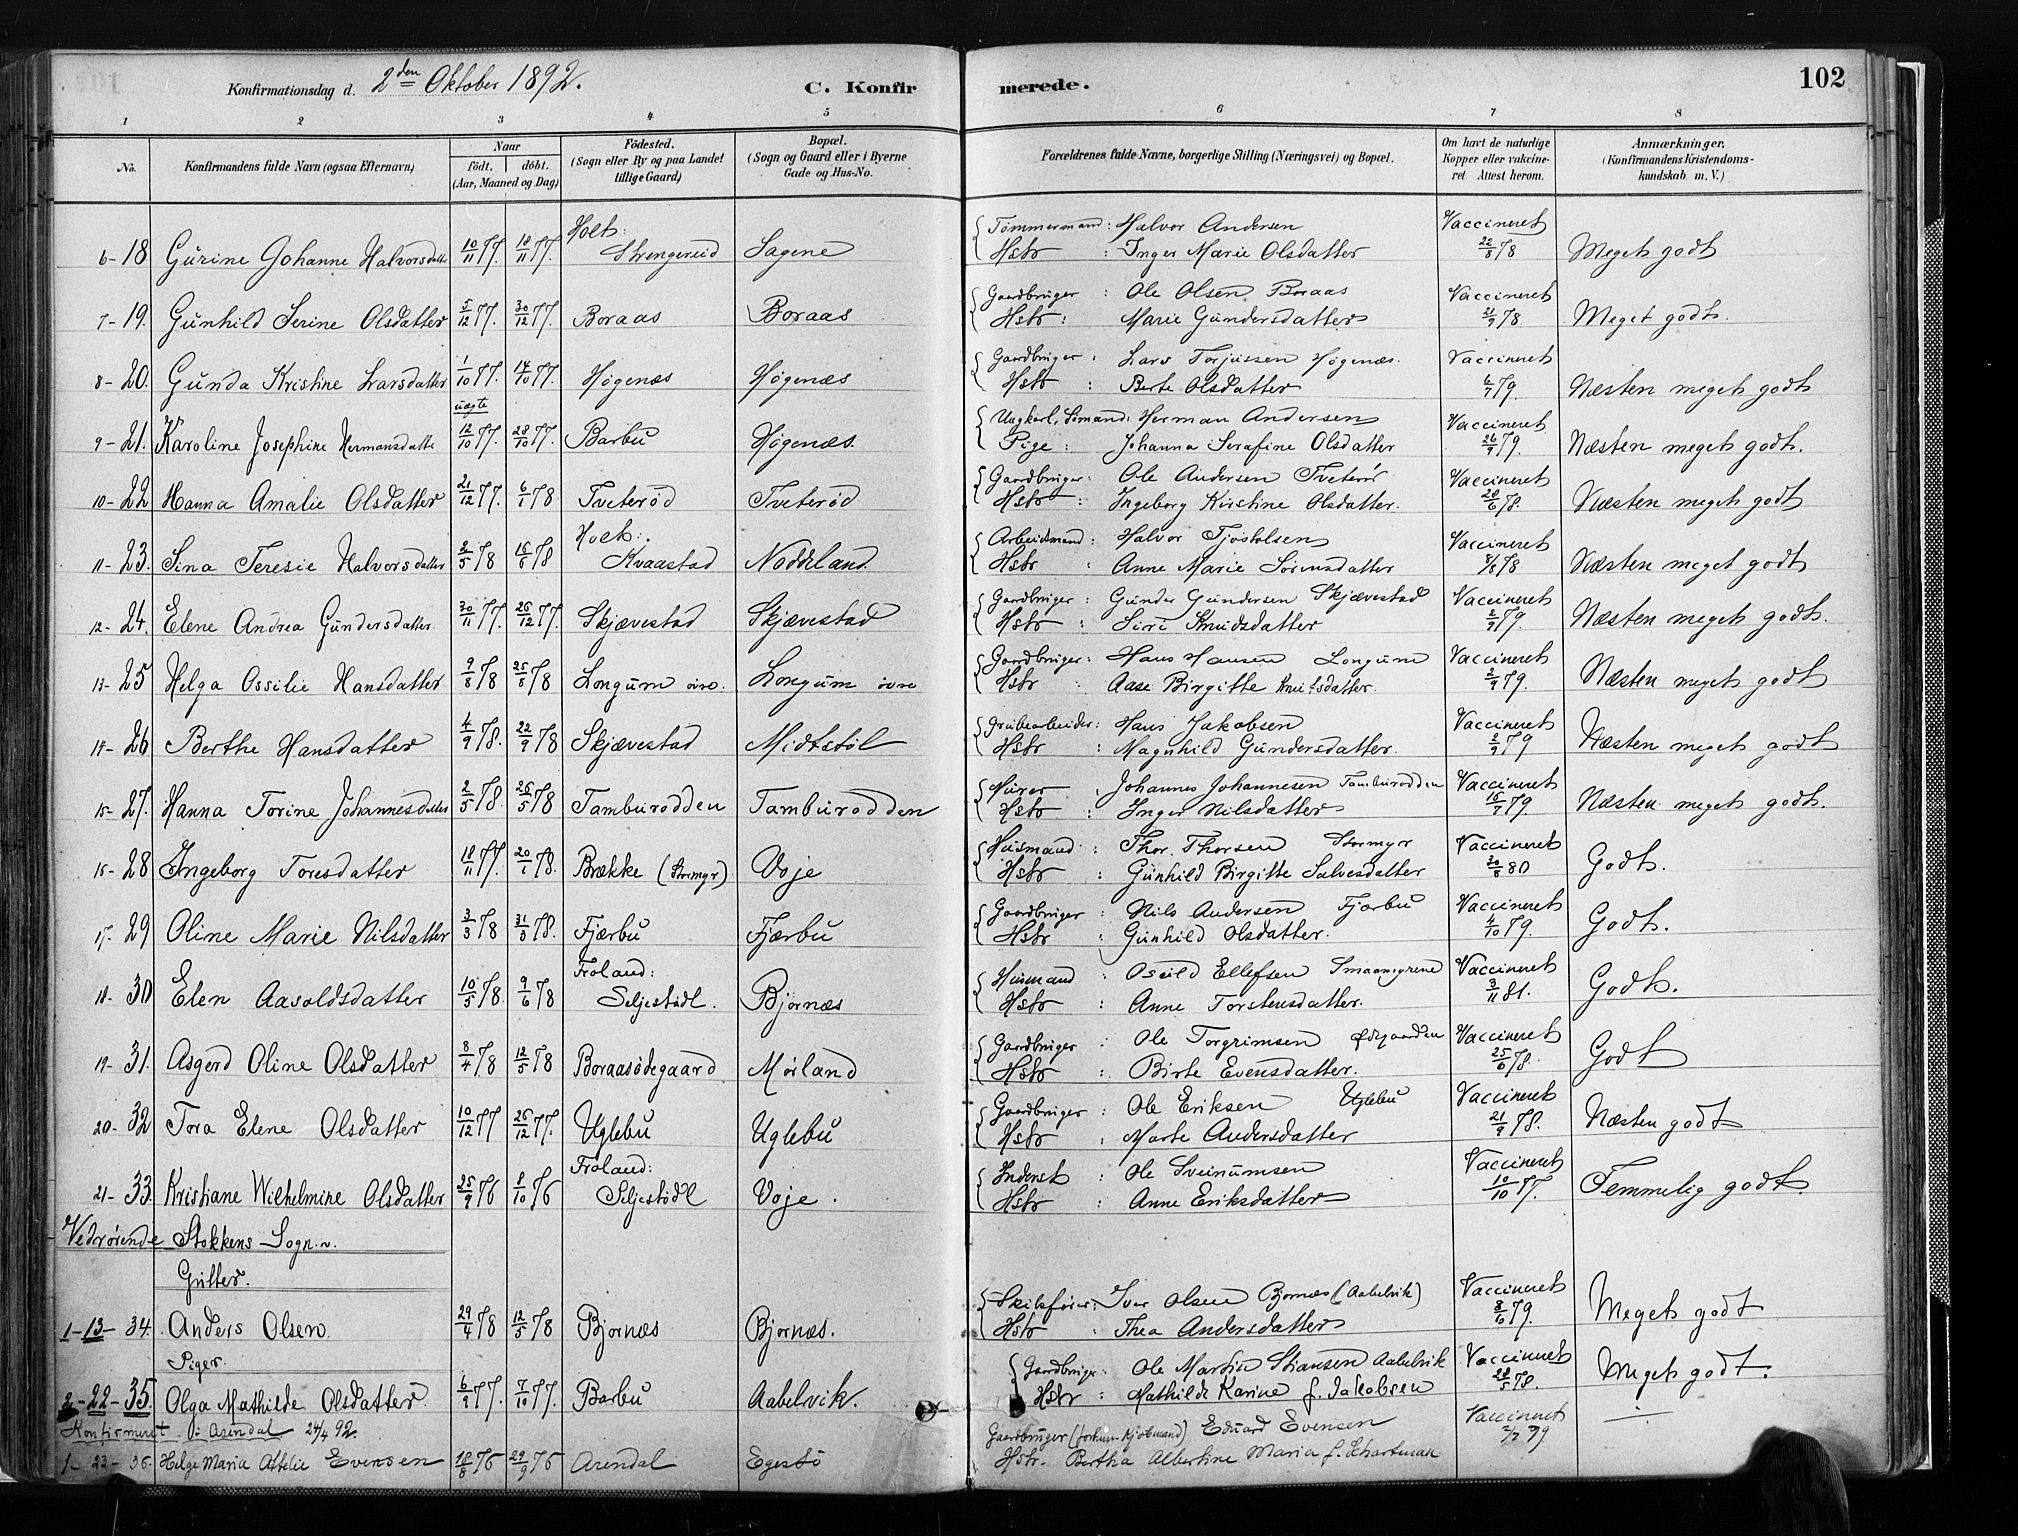 Konfirmationsdag d. 2den Oktober 1892. C. Konfirmerede. 102
1 2 3 4 5 6 7 8
No. Konfirmandens fulde Navn (ogsaa Efternavn) Naar født. døbt. (Aar, Maaned og Dag) Fødested. (Sogn eller By og paa Landet tillige Gaard) Bopæl. (Sogn og Gaard eller i Byerne Gade og Hus-No. Forældrenes fulde Navne, borgerlige Stilling (Næringsvei) og Bopæl. Om havt de naturlige Kopper eller vakcineret. Attest herom. Anmærkninger. (Konfirmandens Kristendomskundskab m. V.)
6- 18 Gurine Johanne Halvorsdatter 10/11 77. 18/11 77. Holt: Strengereid Sagene Tømmermand: Halvor Andersen Vaccineret 22/8 78 Meget godt
Hstr : Inger Marie Olsdatter
7- 19. Gunhild Serine Olsdatter 5/12 77. 30/12 77. Boraas Boraas Gaardbruger : Ole Olsen Boraas Vaccineret 21/9 78 Meget godt.
Hstr : Marie Gundersdatter
8- 20. Gunda Kristine Larsdatter 1/10 77. 14/10 77. Høgenæs Høgenæs Gaardbruger : Lars Torjussen Høgenæs. Vaccineret 6/7 79. Næsten meget godt
Hstr : Berte Olsdatter
9- 21. Karoline Josephine Hermansdatter uægte 12/10 77. 28/10 77. Barbu Høgenæs. Ungkarl, Sømand: Herman Andersen Vaccineret 26/9 79. Næsten meget godt.
Pige : Johanna Serafine Olsdatter
10- 22 Hanna Amalie Olsdatter 21/12 77. 6/1 78 Tveterød Tveterød Gaardbruger: Ole Andersen Tveterø Vaccineret 28/6 78. Næsten meget godt
Hstr : Ingeborg Kirstine Olsdatter.
11- 23. Sina Teresie Halvorsdatter 2/5 78 16/6 78 Holt: Kvaastad Nodeland Arbeidsmand : Halvor Tjostolsen Vaccineret 8/8 78 Næsten meget godt
Hstr : Anne Marie Sørensdatter
12- 24. Elene Andrea Gundersdatter. 30/11 77. 26/12 77. Skjævestad Skjævestad Gaardbruger : Gunder Gundersen Skjævestad Vaccineret 2/9 79. Næsten meget godt.
Hstr : Siri Knudsdatter
13- 25 Helga Ossilie Hansdatter 9/8 78 25/8 78 Longum øvre. Longum øvre Gaardbruger: Hans Hansen Longum Vaccineret 2/9 79. Næsten meget godt
Hstr : Aase Birgitte Knutsdatter.
14- 26 Berthe Hansdatter 4/9 78. 22/9 78 Skjævestad Midtstøl Grubearbeider: Hans Jakobsen Vaccineret 2/9 79 Næsten meget godt
Hstr : Magnhild Gundersdatter.
15- 27. Hanna Torine Johannesdatter 2/5 78. 26/5 78 Tamburodden Tamburodden Murer : Johannes Johannesen Tamburodden Vaccineret 16/7 79 Næsten meget godt.
Hstr : Inger Nilsdatter
16- 28 Ingeborg Toresdatter 18/11 77. 20/1 78. Brække (Stormyr) Voje Husmand : Thor. Thorsen Stormyr Vaccineret 30/8 80 Godt.
Hstr : Gunhild Birgitte Salvesdatter
17- 29 Oline Marie Nilsdatter 3/3 78 31/3 78. Fjærbu Fjærbu Gaardbruger : Nils Andersen Fjærbu Vaccineret 4/10 79. Godt.
Hstr : Gunhild Olsdatter.
18- 30 Elen Aasoldsdatter 10/5 78. 9/6 78 Froland: Seljestødl. Bjørnæs Husmand : Osuld Ellefsen Smaamyrene Vaccineret 3/11 81. Godt.
Hstr : Anne Torstensdatter.
19- 31. Asgerd Oline Olsdatter 8/4 78 12/5 78 Boraasødegaard Mørland Gaardbruger : Ole Torgrimsen Ødegaarden Vaccineret 25/6 78. Godt
Hstr : Birte Evensdatter.
20- 32 Tora Elene Olsdatter 10/12 77 26/12 77. Uglebu Uglebu Gaardbruger : Ole Eriksen Uglebu Vaccineret 21/9 78. Næsten godt
Hstr : Marte Andersdatter
21- 33. Kristiane Wilhelmine Olsdatter 25/9 76 8/10 76 Froland: Seljestødl Voje. Inderst : Ole Sveinumsen Vaccineret 10/10 77. Temmelig godt.
Hstr : Anne Eriksdatter
Vedrørende Stokkens Sogn.
Gutter.
1-13- 34. Anders Olsen 29/4 78 12/5 78 Bjørnæs Bjørnæs. Skibsfører: Iver Olsen Bjørnæs (Aabelvik) Vaccineret 8/6 79. Meget godt
Hstr : Thea Andersdatter
Piger.
2-22-35. Olga Mathilde Olsdatter. 6/9 77. 7/10 77. Barbu Aabelvik. Gaardbruger : Ole Martin Stiansen Aabelvik Vaccineret 28/5 78. Meget godt.
Hstr : Mathilde Karine f. Jakobsen
Konfirmeret i Arendal 24/4 92.
1- 23- 36. Helge Maria Attelie Evensen 18/8 76 29/9 76 Arendal Egestø Gaardbruger (forhen Kjøbmand) Eduard Evensen Vaccineret 2/7 79 —
Hstr. Bertha Albertine Maria f. Schartman